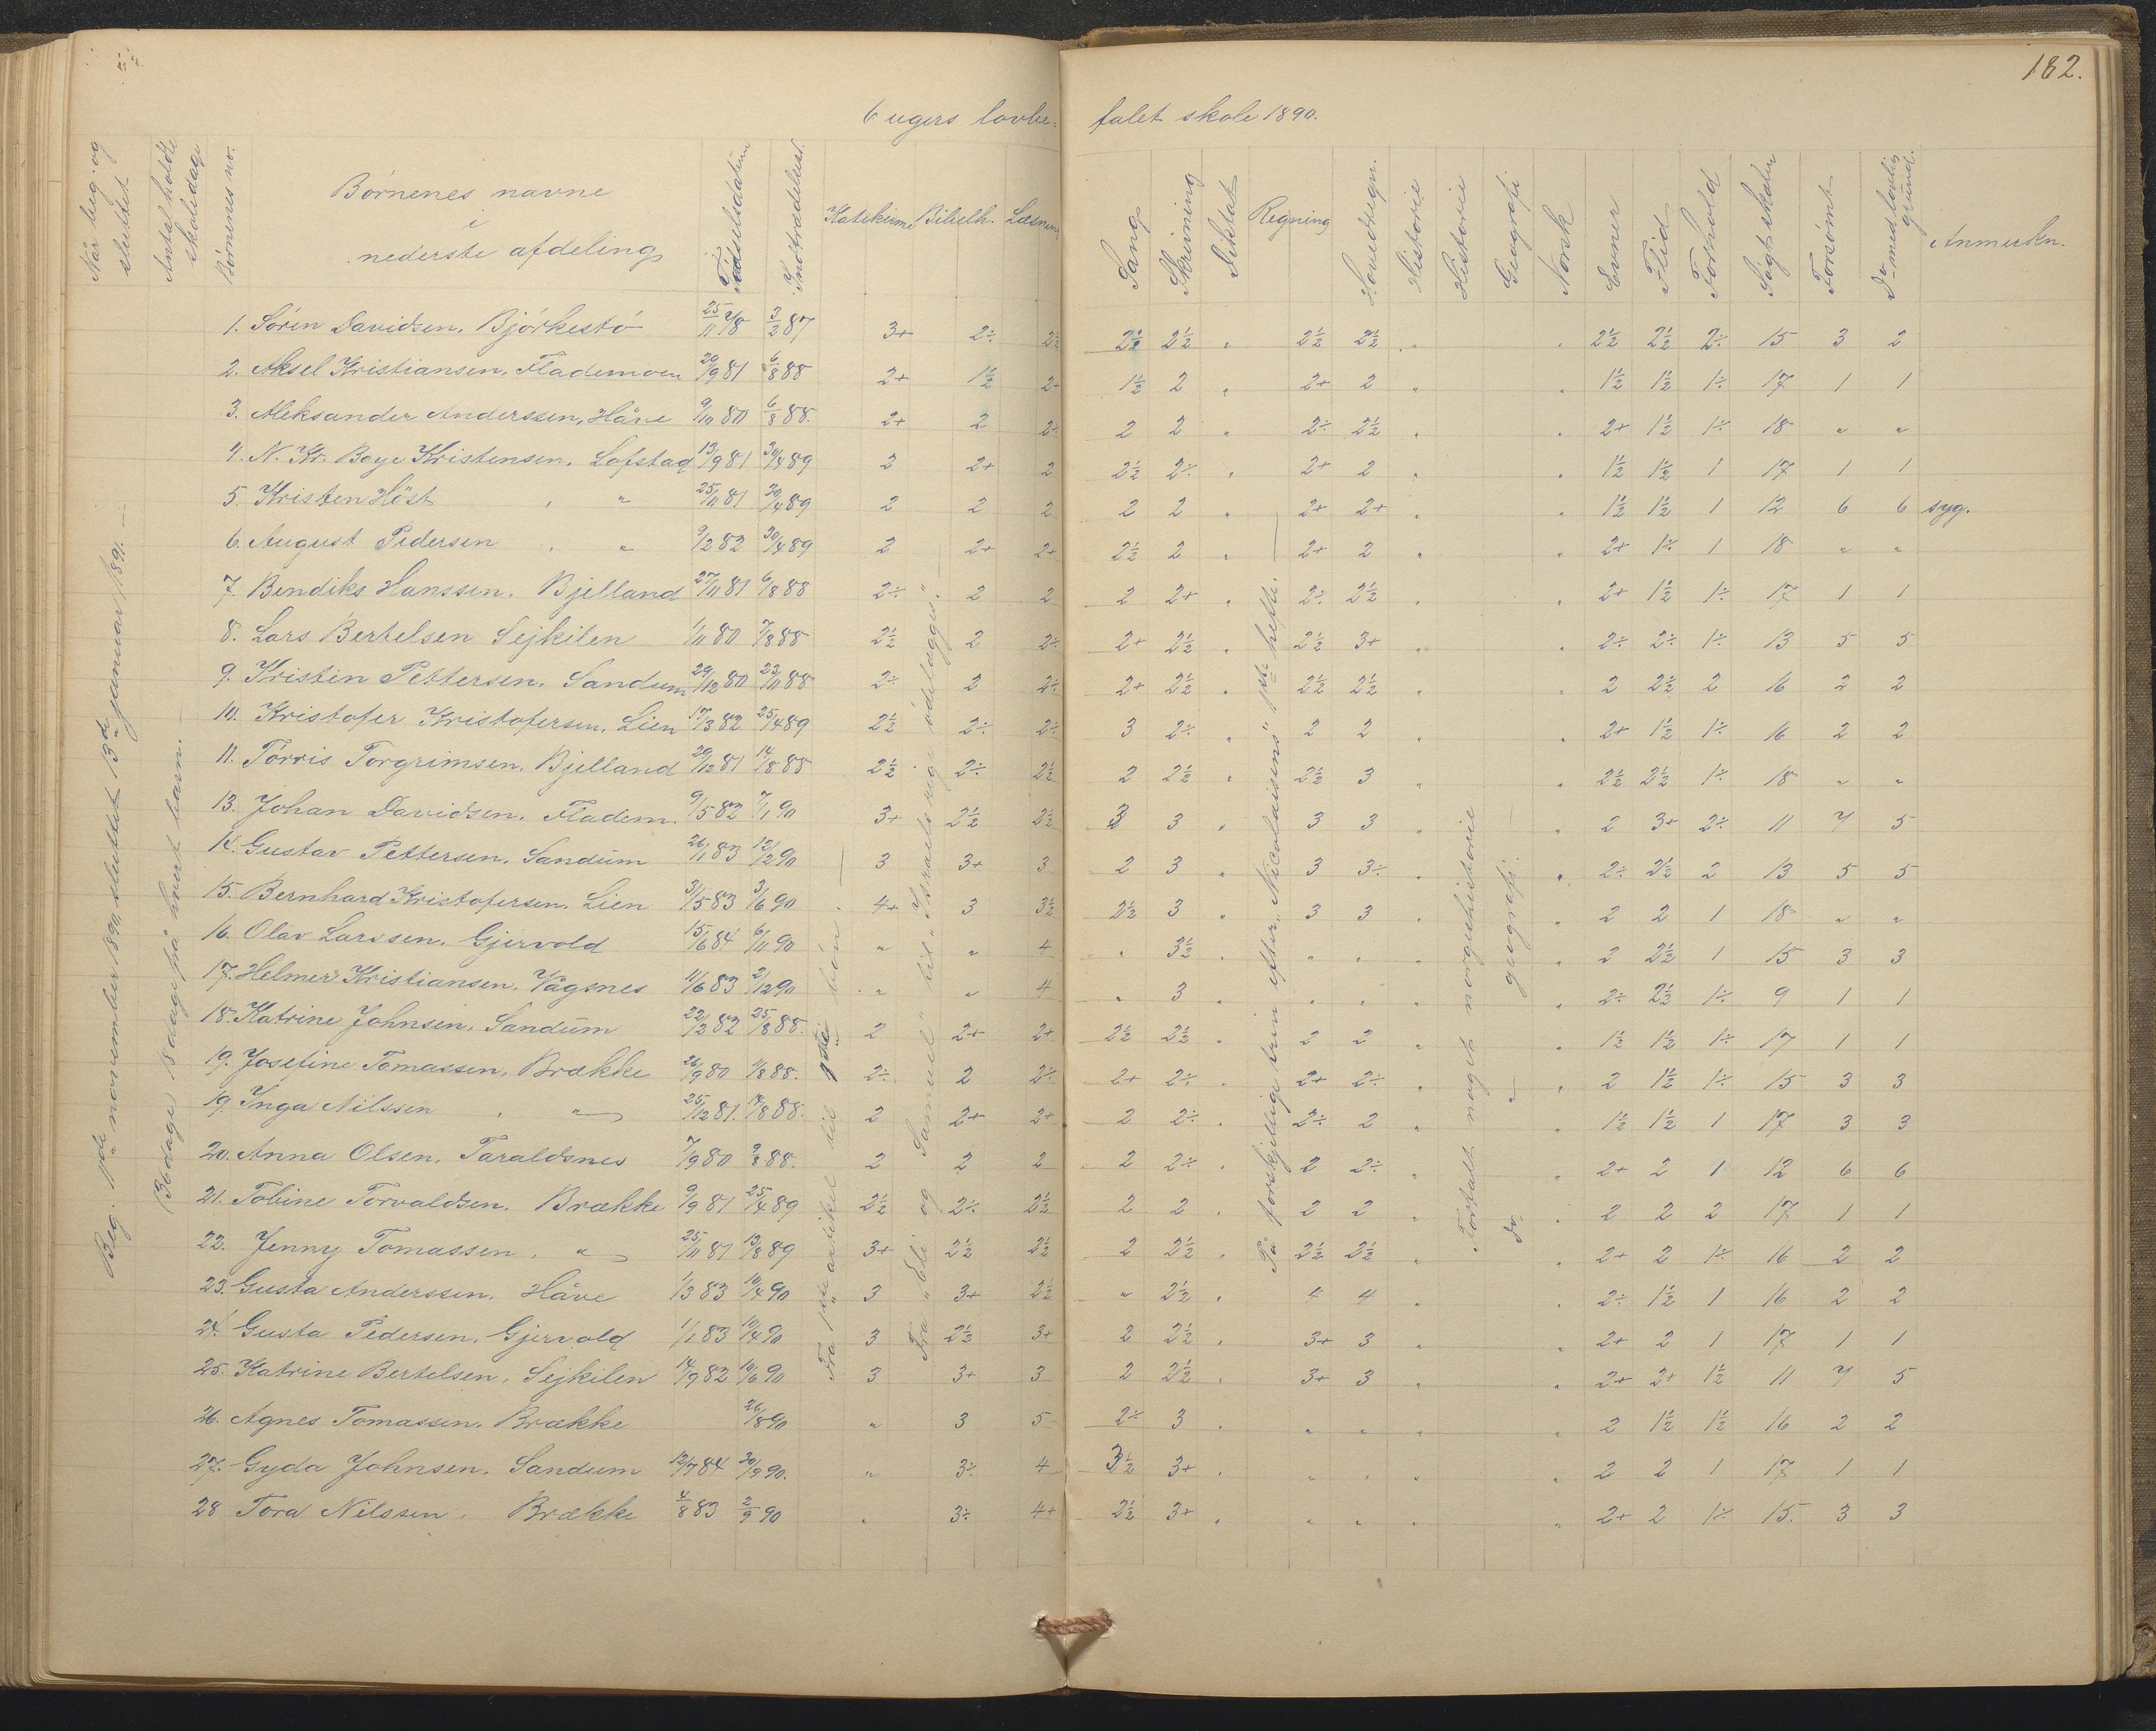 182.
6 ugers lovbe= falet skole 1890.
Når beg. og sluttet
Antal holdte skoledage
Børnenes no.
Børnenes navne i nederste afdeling
Fødselsdatum
Indtrædelsest.
Katekisme Bibelh. Læsning
Sang Skrivning Diktat Regning Hovedregn. Historie Historie Geografi Norsk Evner Flid Forhold Søgt skolen Forsømt Do med lovlig grund. Anmerkn.
Beg. 11de november 1890, sluttet 13de januar 1891. —
36 dage, 18 dage på hvert barn. —
1. Søren Davidsen, Bjørkestø 25/11 78 3/2 87 3+ 2÷ 2½ 2½ 2½ " 2½ 2½ " " 2½ 2½ 2÷ 15 3 2
2. Aksel Kristiansen, Flademoen 29/9 81 6/8 88 2+ 1½ 2+ 1½ 2 " 2+ 2 " " 1½ 1½ 1÷ 17 1 1
3. Aleksander Anderssen, Håve 9/10 80 6/8 88. 2+ 2 2÷ 2 2 " 2÷ 2½ " " 2+ 1½ 1÷ 18 " "
4. N. Kr. Boye Kristensen, Lofstad 13/9 81 30/4 89 2 2+ 2 2½ 2÷ " 2+ 2 " " 1½ 1½ 1 17 1 1
5. Kristen Høst " " 25/11 81 30/4 89 2 2 2 2 2 " 2+ 2+ " " 1½ 1½ 1 12 6 6 syg.
6. August Pedersen " " 9/2 82 30/4 89 2 2+ 2+ 2½ 2 " 2+ 2 " " 2+ 1÷ 1 18 " "
7. Bendiks Hanssen, Bjelland 27/11 81 6/8 88 2÷ 2 2 2 2+ " 2÷ 2½ " " 2+ 1½ 1÷ 17 1 1
8. Lars Bertelsen Sejkilen 1/11 80 7/8 88 2½ 2 2÷ 2+ 2½ " 2½ 3+ " " 2÷ 2÷ 1÷ 13 5 5
9. Kristin Pettersen, Sandum 29/12 80 23/11 88 2÷ 2 2÷ 2+ 2½ " 2½ 2½ " " 2 2½ 2 16 2 2
10. Kristofer Kristofersen, Lien 17/3 82 25/4 89 2½ 2÷ 2÷ 3 2÷ " 2 2 " " 2+ 1½ 1÷ 16 2 2
11. Tørris Torgrimsen, Bjelland 29/12 81 14/8 88 2½ 2÷ 2½ 2 2½ " 2½ 3 " " 2½ 2½ 1÷ 18 " "
13. Johan Davidsen, Fladem. 9/5 82 7/1 90 3+ 2½ 2½ 3 3 " 3 3 " " 2 3+ 2÷ 11 7 5
14. Gustav Pettersen, Sandum 26/11 83 12/2 90 3 3+ 3 2 3 " 3 3÷ " " 2÷ 2½ 2 13 5 5
15. Bernhard Kristofersen, Lien 31/5 83 3/6 90 4+ 3 3½ 2½ 3 " 3 3 " " 2 2 1 18 " "
16. Olav Larssen, Gjervold 15/6 84 6/11 90 " " 4 " 3½ " " " " " 2 2½ 1 15 3 3
17. Helmer Kristiansen, Vågsnes 11/6 83 2/12 90 " " 4 " 3 " " " " " 2÷ 2½ 1÷ 9 1 1
18. Katrine Johnsen, Sandum 22/2 82 25/8 88. 2 2+ 2+ 2½ 2½ " 2 2 " " 1½ 1½ 1÷ 17 1 1
19. Josefine Tomassen, Brække 26/9 80 11/8 88. 2÷ 2 2÷ 2+ 2÷ " 2+ 2÷ " " 2 1½ 1÷ 15 3 3
19. Inga Nilssen " " 25/12 81. 7/8 88. 2 2+ 2+ 2 2÷ " 2÷ 2 " " 1½ 1½ 1 17 3 3
20. Anna Olsen, Taraldsnes 7/9 80 9/8 88. 2 2 2 2 2÷ " 2 2÷ " " 2+ 2 1 12 6 6
21. Tobine Torvaldsen, Brække 9/9 81 25/4 89 2½ 2÷ 2½ 2 2 " 2 2 " " 2 2 2 17 1 1
22. Jenny Tomassen, " 25/11 81 13/8 89 3+ 2½ 2½ 2 2½ " 2½ 2½ " " 2+ 2 1÷ 16 2 2
23. Gusta Anderssen, Håve 1/3 83 10/4 90 3 3+ 2½ " 2½ " 4 4 " " 2÷ 1½ 1 16 2 2
24. Gusta Pedersen, Gjervold 1/1 83 10/4 90 3 2½ 3+ 2 2½ " 3+ 3 " " 2+ 2 1 17 1 1
25. Katrine Bertelsen, Sejkilen 14/9 82 10/6 90 3 3+ 3 2 2½ " 3+ 3 " " 2+ 2+ 1½ 11 7 5
26. Agnes Tomassen, Brække 26/8 90 " 3 5 2÷ 3 " " " " " 2 1½ 1½ 16 2 2
27. Gyda Johnsen, Sandum 12/7 84 30/9 90. " 3÷ 4 3½ 3+ " " " " " 2 2 1 17 1 1
28 Tora Nilssen, Brække 4/8 83 2/9 90 " 3÷ 4+ 2½ 3+ " " " " " 2+ 2 1÷ 15. 3 3
Fra 1ste artikel til 1ste bøn. —
Fra "Eli og Samuel" til "Israels rige ødelægges". —
På forskjellige trin efter "Nicolaisens" 1ste hefte. —
Fortalt noget norgeshistorie
Do — " — geografi. —